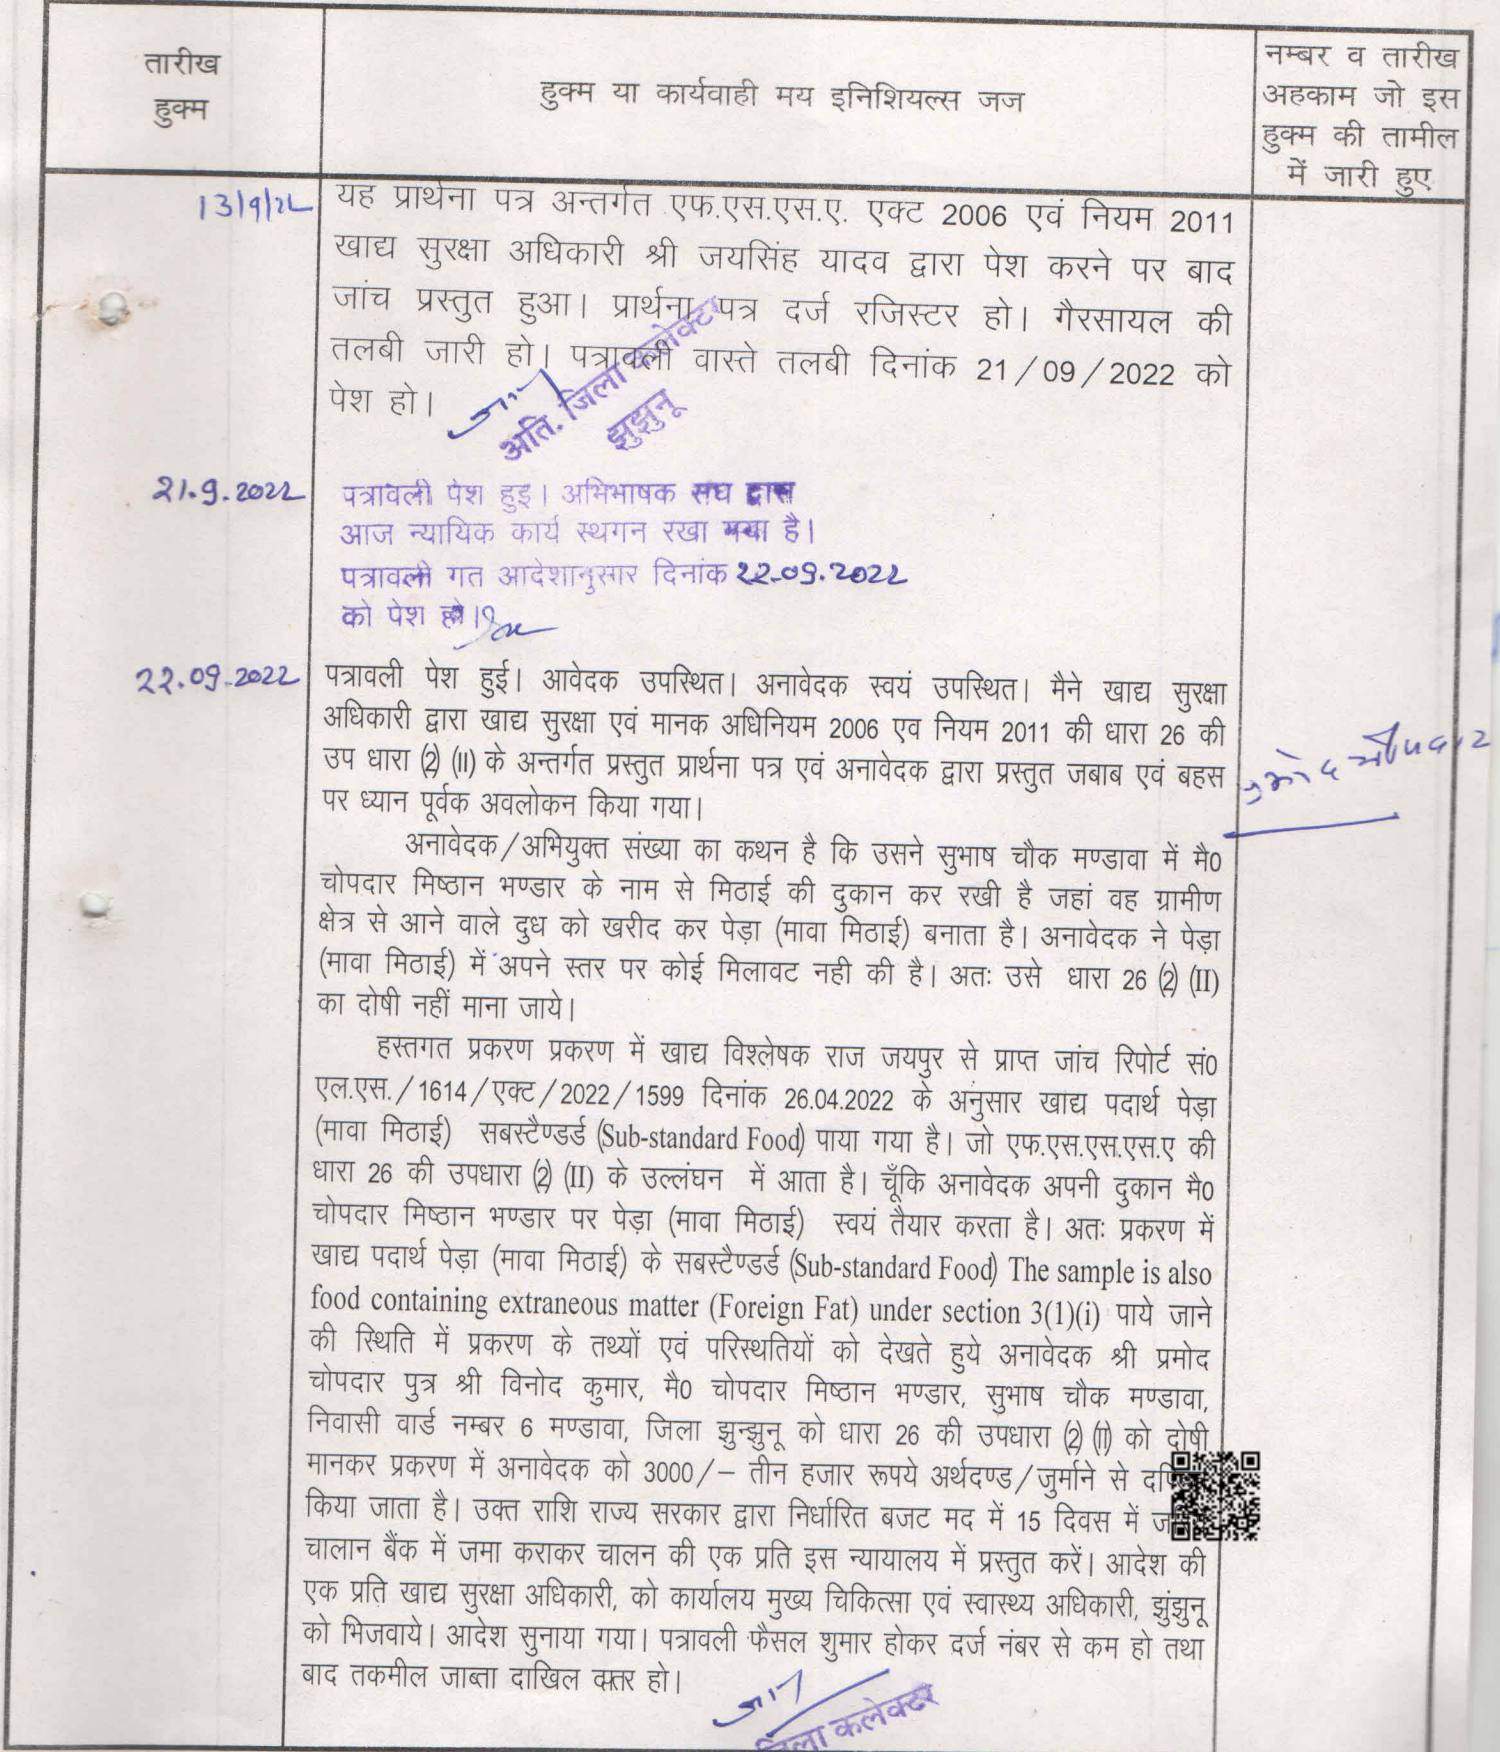 तारीख
हुक्म
हुक्म या कार्यवाही मय इनिशियल्स जज
नम्बर व तारीख
अहकाम जो इस
हुक्म की तामील
में जारी हुए
13/9/22
यह प्रार्थना पत्र अन्तर्गत एफ.एस.एस.ए. एक्ट 2006 एवं नियम 2011
खाद्य सुरक्षा अधिकारी श्री जयसिंह यादव द्वारा पेश करने पर बाद
जांच प्रस्तुत हुआ। प्रार्थना पत्र दर्ज रजिस्टर हो। गैरसायल की
तलबी जारी हो। पत्रावली वास्ते तलबी दिनांक 21/09/2022 को
पेश हो।
अति. जिला कलेक्टर
झुझुनू
21.9.2022
पत्रावली पेश हुइ। अभिभाषक संघ द्वारा
आज न्यायिक कार्य स्थगन रखा गया है।
पत्रावली गत आदेशानुसार दिनांक 22.09.2022
को पेश हो।
22.09.2022
पत्रावली पेश हुई। आवेदक उपस्थित। अनावेदक स्वयं उपस्थित। मैने खाद्य सुरक्षा
अधिकारी द्वारा खाद्य सुरक्षा एवं मानक अधिनियम 2006 एव नियम 2011 की धारा 26 की
उप धारा (2) (II) के अन्तर्गत प्रस्तुत प्रार्थना पत्र एवं अनावेदक द्वारा प्रस्तुत जबाब एवं बहस
पर ध्यान पूर्वक अवलोकन किया गया।
अनावेदक/अभियुक्त संख्या का कथन है कि उसने सुभाष चौक मण्डावा में मै0
चोपदार मिष्ठान भण्डार के नाम से मिठाई की दुकान कर रखी है जहां वह ग्रामीण
क्षेत्र से आने वाले दुध को खरीद कर पेड़ा (मावा मिठाई) बनाता है। अनावेदक ने पेड़ा
(मावा मिठाई) में अपने स्तर पर कोई मिलावट नही की है। अतः उसे धारा 26 (2) (II)
का दोषी नहीं माना जाये।
हस्तगत प्रकरण प्रकरण में खाद्य विश्लेषक राज जयपुर से प्राप्त जांच रिपोर्ट सं0
एल.एस./1614/एक्ट/2022/1599 दिनांक 26.04.2022 के अनुसार खाद्य पदार्थ पेड़ा
(मावा मिठाई) सबस्टैण्डर्ड (Sub-standard Food) पाया गया है। जो एफ.एस.एस.एस.ए की
धारा 26 की उपधारा (2) (II) के उल्लंघन में आता है। चूँकि अनावेदक अपनी दुकान मै0
चोपदार मिष्ठान भण्डार पर पेड़ा (मावा मिठाई) स्वयं तैयार करता है। अतः प्रकरण में
खाद्य पदार्थ पेड़ा (मावा मिठाई) के सबस्टैण्डर्ड (Sub-standard Food) The sample is also
food containing extraneous matter (Foreign Fat) under section 3(1)(i) पाये जाने
की स्थिति में प्रकरण के तथ्यों एवं परिस्थतियों को देखते हुये अनावेदक श्री प्रमोद
चोपदार पुत्र श्री विनोद कुमार, मै0 चोपदार मिष्ठान भण्डार, सुभाष चौक मण्डावा,
निवासी वार्ड नम्बर 6 मण्डावा, जिला झुन्झुनू को धारा 26 की उपधारा (2) (II) को दोषी
मानकर प्रकरण में अनावेदक को 3000/– तीन हजार रूपये अर्थदण्ड/जुर्माने से
किया जाता है। उक्त राशि राज्य सरकार द्वारा निर्धारित बजट मद में 15 दिवस में
चालान बैंक में जमा कराकर चालन की एक प्रति इस न्यायालय में प्रस्तुत करें। आदेश की
एक प्रति खाद्य सुरक्षा अधिकारी, को कार्यालय मुख्य चिकित्सा एवं स्वास्थ्य अधिकारी, झुंझुनू
को भिजवाये। आदेश सुनाया गया। पत्रावली फैसल शुमार होकर दर्ज नंबर से कम हो तथा
बाद तकमील जाब्ता दाखिल दफ्तर हो।
जिला कलेक्टर